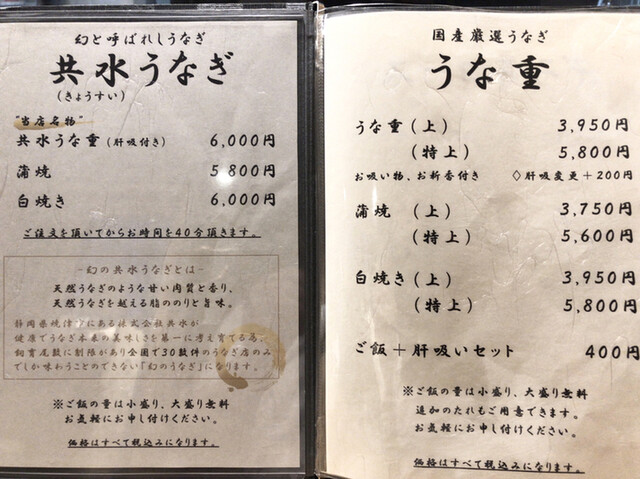 幻と呼ばれしうなぎ
共水うなぎ
(きょうすい)
"当店名物"
共水うな重(肝吸付き) 6,000円
蒲焼 5,800円
白焼き 6,000円
ご注文を頂いてからお時間を40分頂きます。
-幻の共水うなぎとは-
天然うなぎのような甘い肉質と香り、
天然うなぎを越える脂ののりと旨味。
静岡県焼津市にある株式会社共水が
健康でうなぎ本来の美味しさを第一に考え育てる為、
飼育尾数に制限があり全国で30数件のうなぎ店のみ
でしか味わうことのできない「幻のうなぎ」になります。
※ご飯の量は小盛り、大盛り無料
お気軽にお申し付けください。
価格はすべて税込みになります。
国産厳選うなぎ
うな重
うな重(上) 3,950円
(特上) 5,800円
お吸い物、お新香付き ◇肝吸変更+200円
蒲焼 (上) 3,750円
(特上) 5,600円
白焼き(上) 3,950円
(特上) 5,800円
ご飯+肝吸いセット 400円
※ご飯の量は小盛り、大盛り無料
追加のたれもご用意できます。
お気軽にお申し付けください。
価格はすべて税込みになります。